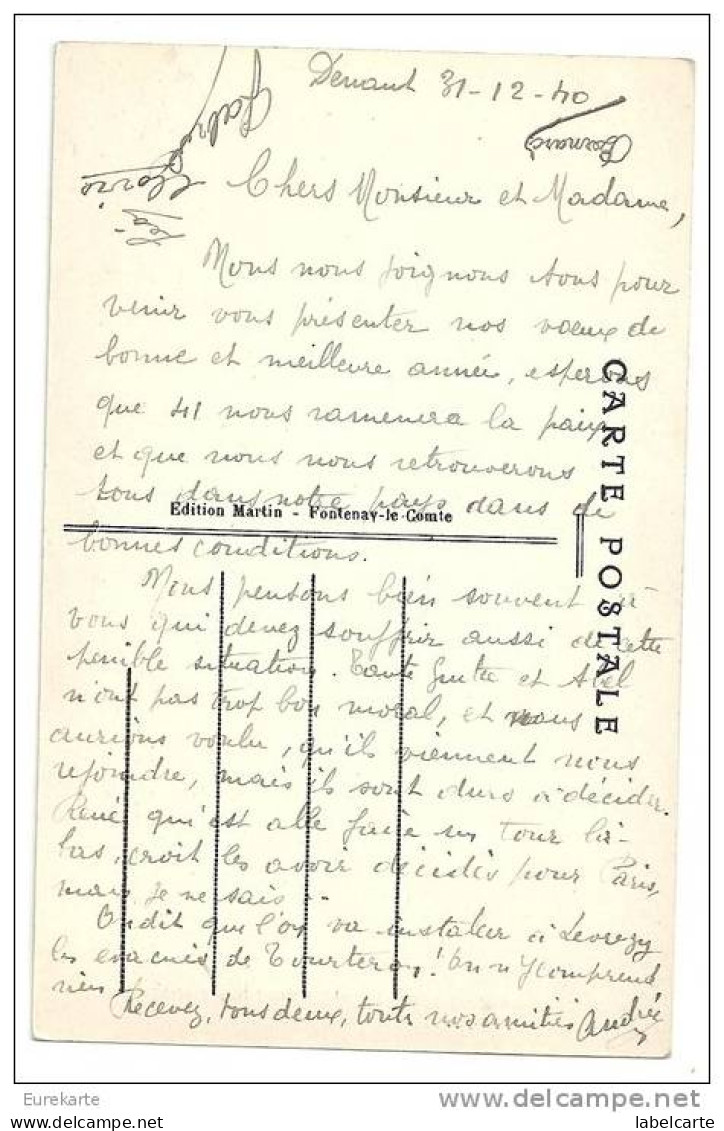 Denant 31-12-40
Bernard
Gabriel
Chers Monsieur et Madame,
Nous nous joignons tous pour
venir vous présenter nos vœux de
bonne et meilleure année, esperons
que 41 nous ramenera la paix
et que nous nous retrouverons
tous dans notre pays dans de
bonnes conditions.
Edition Martin - Fontenay-le-Comte
CARTE POSTALE
Nous pensons bien souvent à
vous qui devez souffrir aussi de cette
penible situation. Tante et Abel
n'ont pas trop bon moral, et nous
aurions voulu, qu'ils viennent nous
rejoindre, mais ils sont durs à décider.
René qu'est allé faire un tour là-
bas, croit les avoir décidés pour Paris,
mais je ne sais..
On dit que l'on va installer à Levrezy
les evacués de Tourteron! On n'y comprend
rien
Recevez, tous deux, toutes nos amitiés Andrée
Eurekarte
delcampe.net
labelcarte